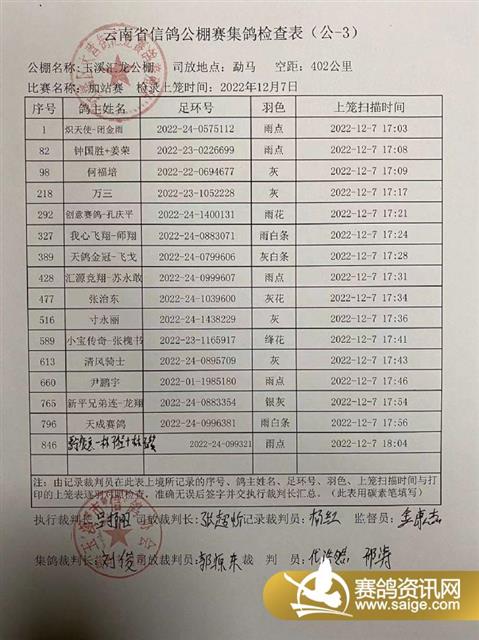 云南省信鸽公棚赛集鸽检查表（公-3）
公棚名称:玉溪汇龙公棚 司放地点: 勐马 空距: 402公里
比赛名称: 加站赛 检录上笼时间: 2022年12月7日
序号 鸽主姓名 足环号 羽色 上笼扫描时间
1 炽天使-闭金雨 2022-24-0575112 雨点 2022-12-7 17:03
82 钟国胜+姜荣 2022-23-0226699 雨点 2022-12-7 17:08
98 何福培 2022-22-0694677 灰 2022-12-7 17:09
218 万三 2022-23-1052228 灰 2022-12-7 17:17
292 创意赛鸽-孔庆平 2022-24-1400131 雨花 2022-12-7 17:21
327 我心飞翔-师翔 2022-24-0883071 雨白条 2022-12-7 17:24
389 天鸽金冠-飞戈 2022-24-0799606 灰白条 2022-12-7 17:28
428 汇源竞翔-苏永敢 2022-24-0999607 雨点 2022-12-7 17:31
477 张治东 2022-24-1039600 灰花 2022-12-7 17:34
516 寸永丽 2022-24-1438229 灰 2022-12-7 17:36
589 小宝传奇-张槐书 2022-23-1165917 绛花 2022-12-7 17:41
613 清风骑士 2022-24-0895709 灰 2022-12-7 17:43
660 尹鹏宇 2022-01-1985180 雨点 2022-12-7 17:46
765 新平兄弟连-龙翔 2022-24-0883354 银灰 2022-12-7 17:54
796 天成赛鸽 2022-24-0996381 雨白条 2022-12-7 17:56
846 2022-24-099321 雨点 2022-12-7 18:04
注: 由记录裁判员在此表上填所记录的序号、鸽主姓名、足环号、羽色、上笼扫描时间与打
印的上笼表逐羽对照检查，准确无误后签字并交执行裁判长汇总。（此表用碳素笔填写）
执行裁判长: 司放裁判长: 记录裁判员: 监督员:
集鸽裁判长: 刘俊 司放裁判员: 裁 判 员:
赛鸽资讯网
www.saige.com